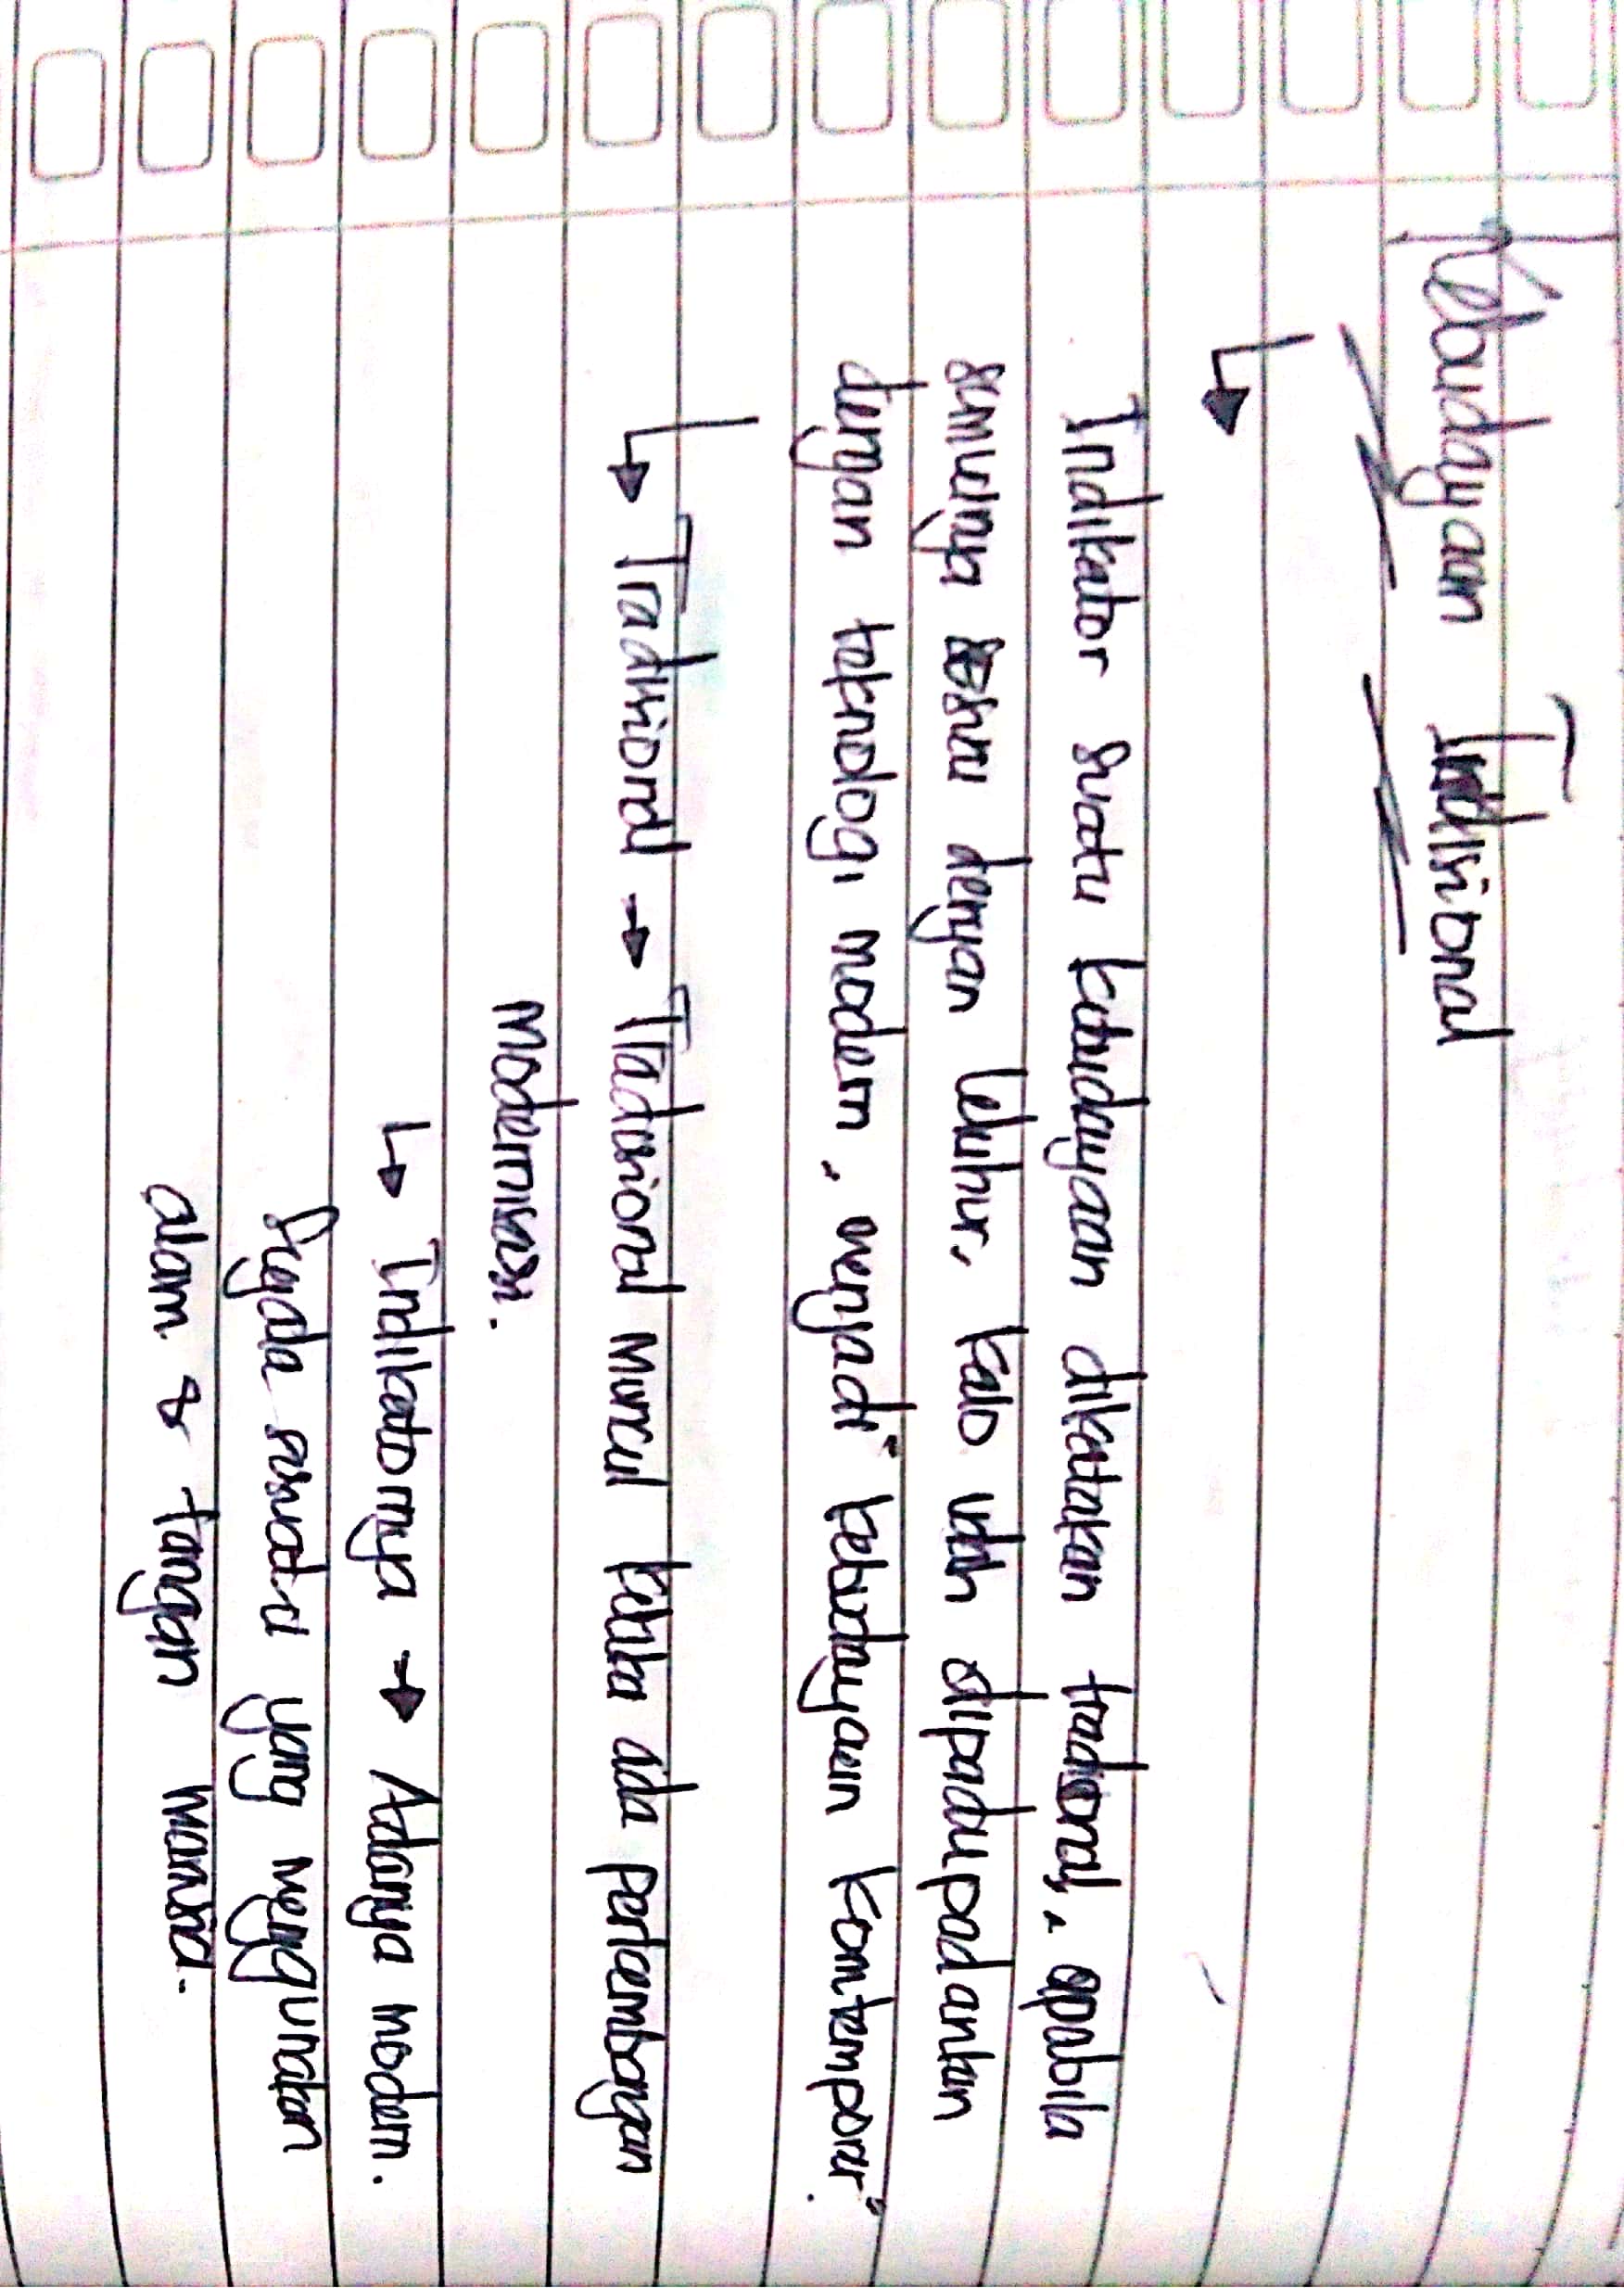 Kebudayaan Tradisional
↳
Indikator suatu kebudayaan dikatakan tradisional, apabila
semuanya sesuai dengan leluhur, kalo udah dipadupadankan
dengan teknologi modern, menjadi "kebudayaan komtemporer".
↳ Tradisional → Tradisional muncul ketika ada perkembangan
modernisasi.
↳ Indikatornya → Adanya modern.
Segala sesuatu yang menggunakan
alam & tangan manusia.